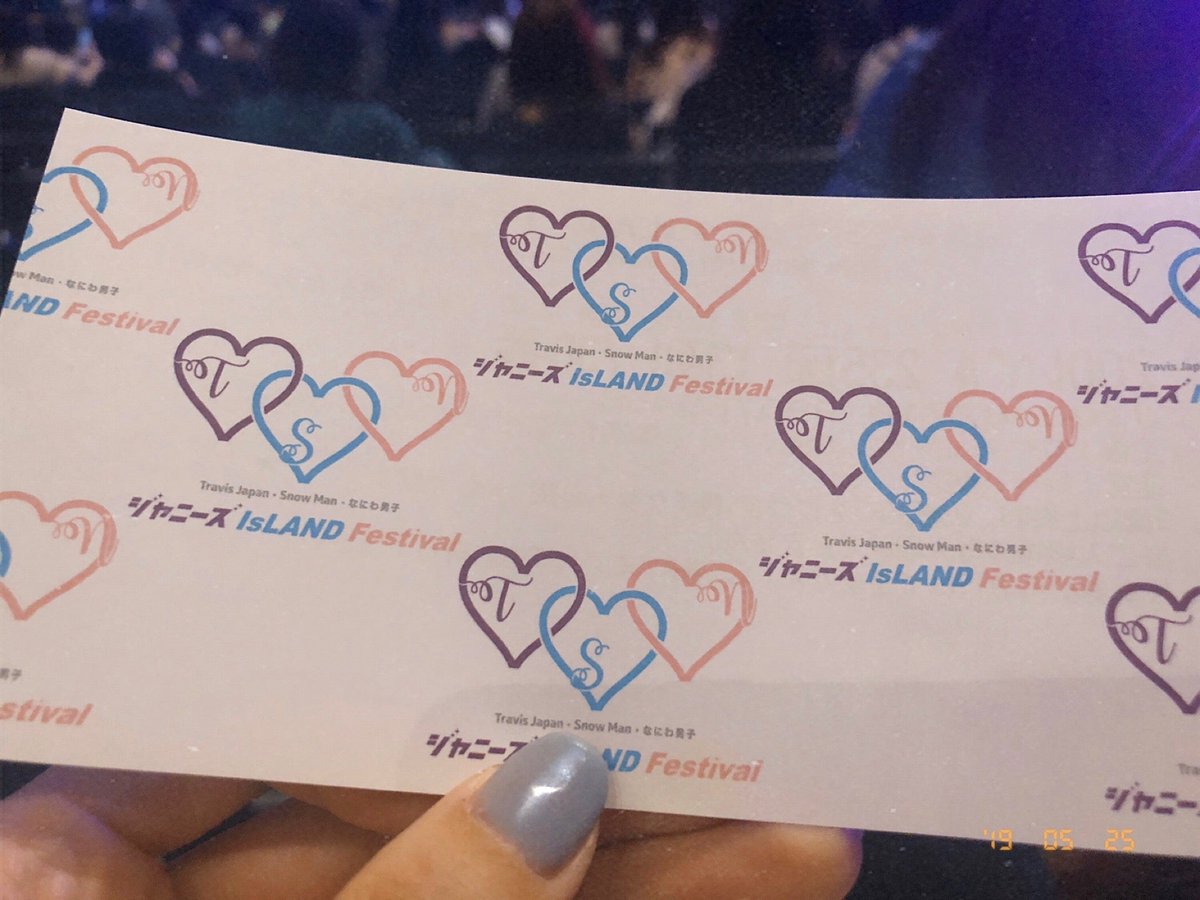 S N
ow Man・なにわ男子
LAND Festival
T S N
Travis Japan・Snow Man・なにわ男子
ジャニーズ IsLAND Festival
T
Travis Jap
ジャニーズ I
T S N
Travis Japan・Snow Man・なにわ男子
ジャニーズ IsLAND Festival
T S N
Travis Japan・Snow Man・なにわ男子
ジャニーズ IsLAND Festival
N
男子
stival
T S N
Travis Japan・Snow Man・なにわ男子
ジャニーズ ND Festival
T
Tra
ジャニー
'19 05 25